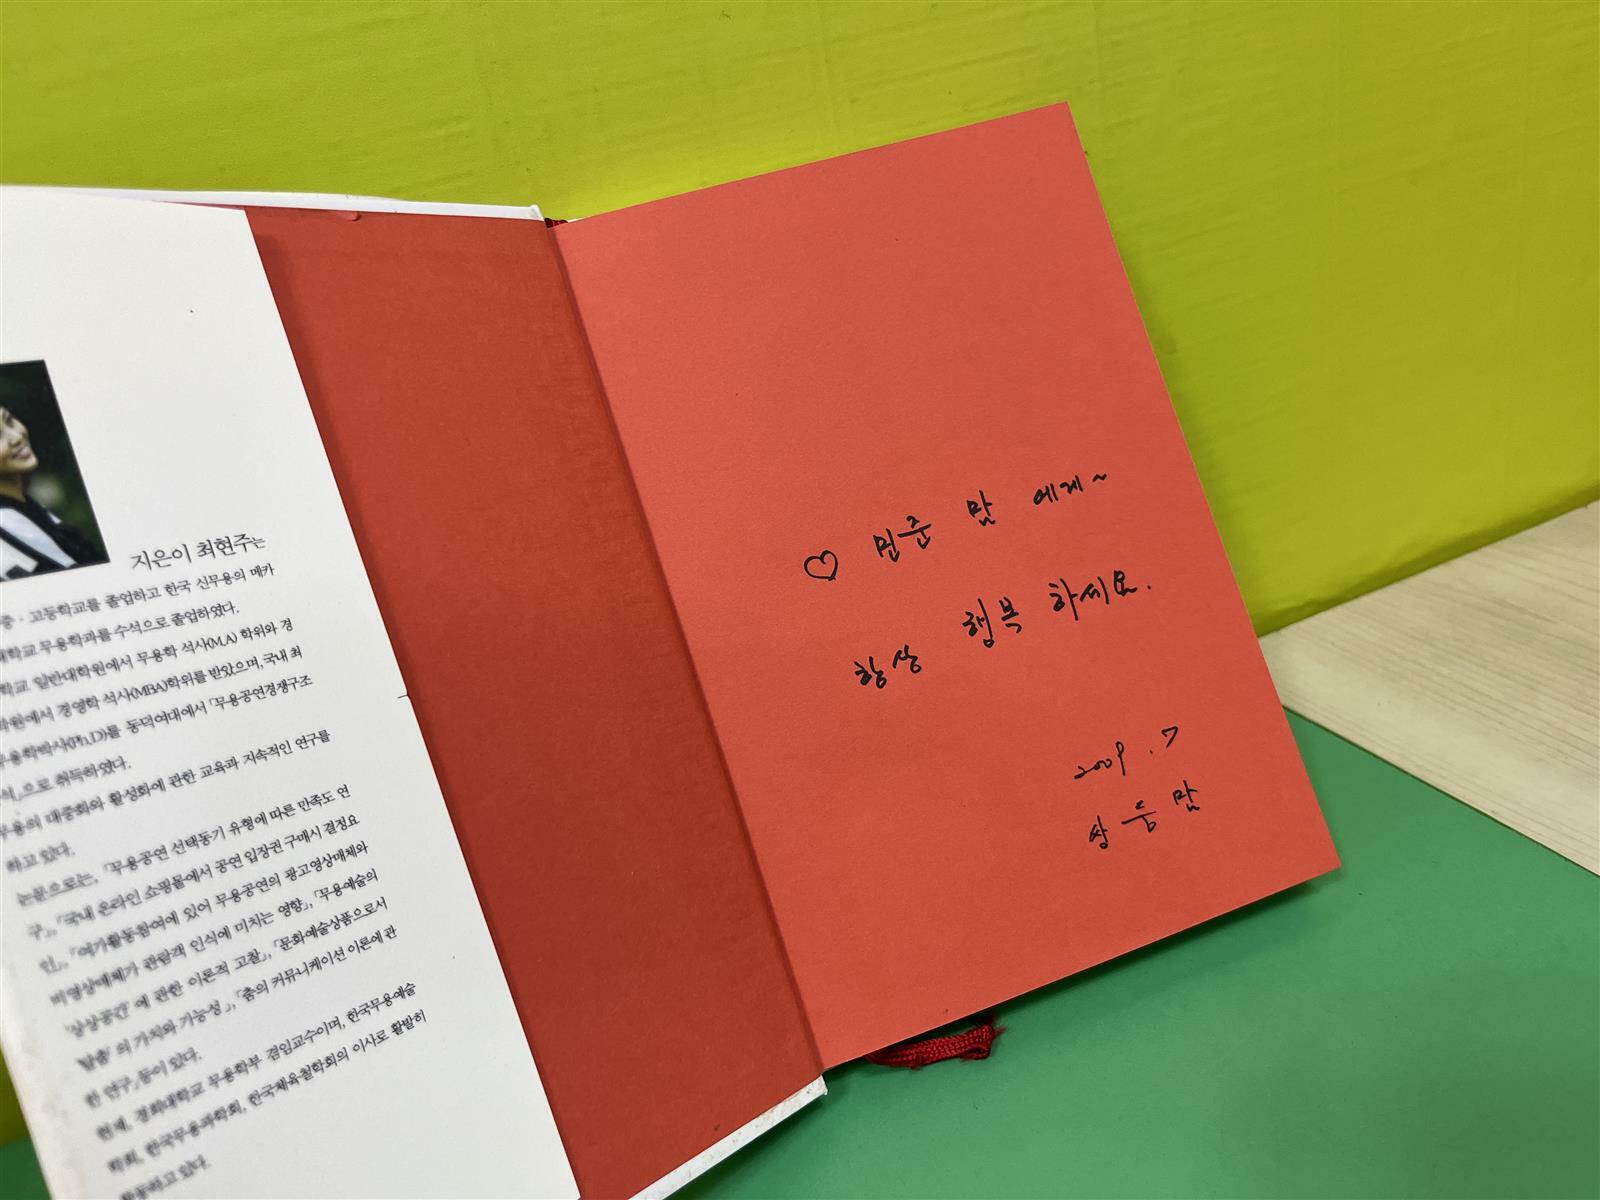 지은이 최현주는
중·고등학교를 졸업하고 한국 신무용의 메카
대학교 무용학과를 수석으로 졸업하였다.
학교 일반대학원에서 무용학 석사(M.A) 학위와 경
학원에서 경영학 석사(MBA)학위를 받았으며, 국내 최
무용학박사(Ph.D)를 동덕여대에서 「무용공연경쟁구조
석」으로 취득하였다.
무용의 대중화와 활성화에 관한 교육과 지속적인 연구를
하고 있다.
논문으로는, 「무용공연 선택동기 유형에 따른 만족도 연
구」, 「국내 온라인 쇼핑몰에서 공연 입장권 구매시 결정요
인」, 「여가활동참여에 있어 무용공연의 광고영상매체와
비영상매체가 관람객 인식에 미치는 영향」, 「무용예술의
'상상공간' 에 관한 이론적 고찰」, 「문화예술상품으로서
'탈춤' 의 가치와 가능성」, 「춤의 커뮤니케이션 이론에 관
한 연구」 등이 있다.
현재, 경희대학교 무용학부 겸임교수이며, 한국무용예술
학회, 한국무용과학회, 한국체육철학회의 이사로 활발히
활동하고 있다.
♡ 민준 맘 에게~
항상 행복 하세요.
2009.7
쌍둥맘